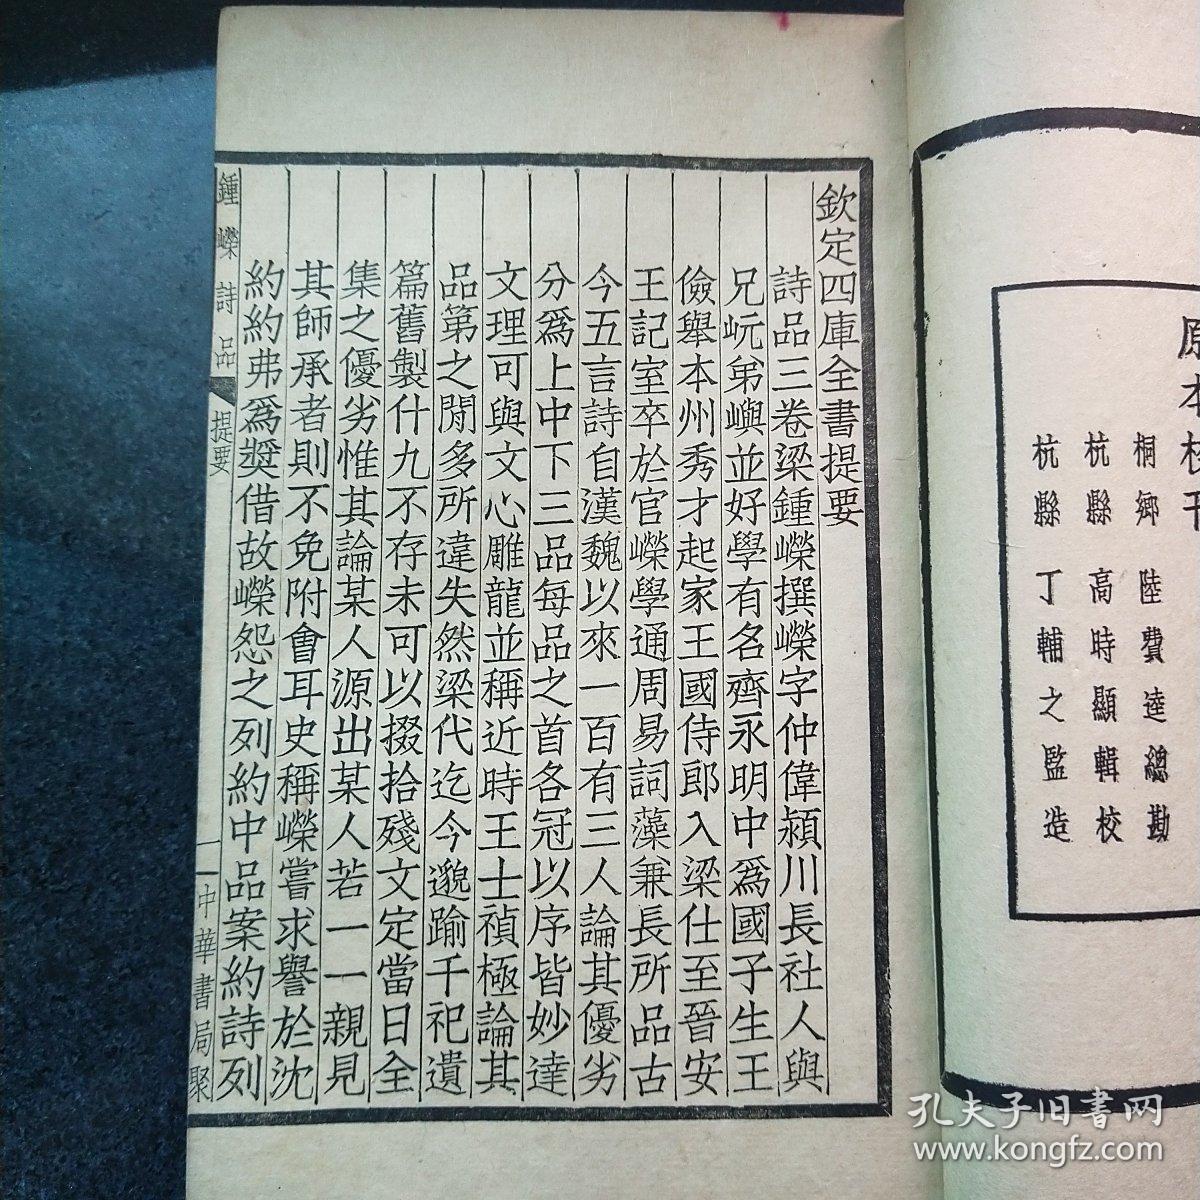 原本校刊
桐鄉 陸費逵總勘
杭縣 高時顯輯校
杭縣 丁輔之監造
欽定四庫全書提要
詩品三卷梁鍾嶸撰嶸字仲偉潁川長社人與
兄岏弟嶼並好學有名齊永明中爲國子生王
儉舉本州秀才起家王國侍郎入梁仕至晉安
王記室卒於官嶸學通周易詞藻兼長所品古
今五言詩自漢魏以來一百有三人論其優劣
分爲上中下三品每品之首各冠以序皆妙達
文理可與文心雕龍並稱近時王士禎極論其
品第之閒多所違失然梁代迄今邈踰千祀遺
篇舊製什九不存未可以掇拾殘文定當日全
集之優劣惟其論某人源出某人若一一親見
其師承者則不免附會耳史稱嶸嘗求譽於沈
約約弗爲奬借故嶸怨之列約中品案約詩列
鍾嶸詩品 提要 一 中華書局聚
孔夫子旧书网
www.kongfz.com